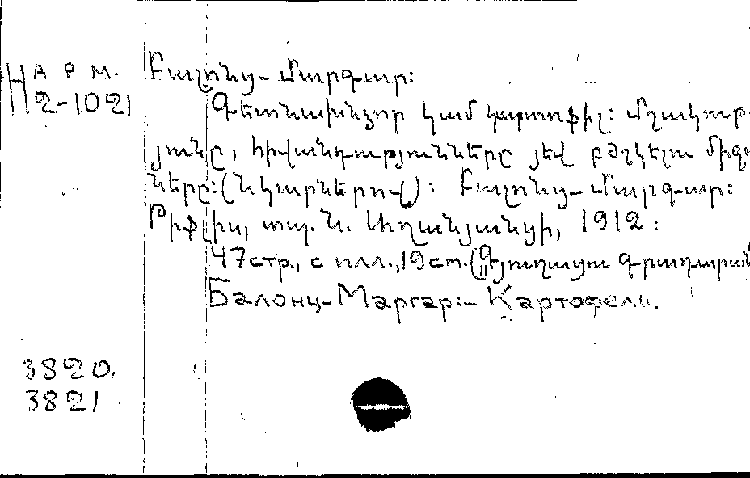 Н арм.
2-1021
Բալոնց-Մարգար։
Գետնախնձոր կամ կարտոֆիլ։ Մշակութ
յունը, հիվանդություններն յեվ բժշկելու միջոց
ները։ (նկարներով)։ Բալոնց-Մարգար։
Թիֆլիս, տպ. Ն. Աղանյանցի, 1912։
47стр., с илл., 19см. (Գյուղական գրադարան
Балонц-Маргар:- Картофель.
3820.
3821